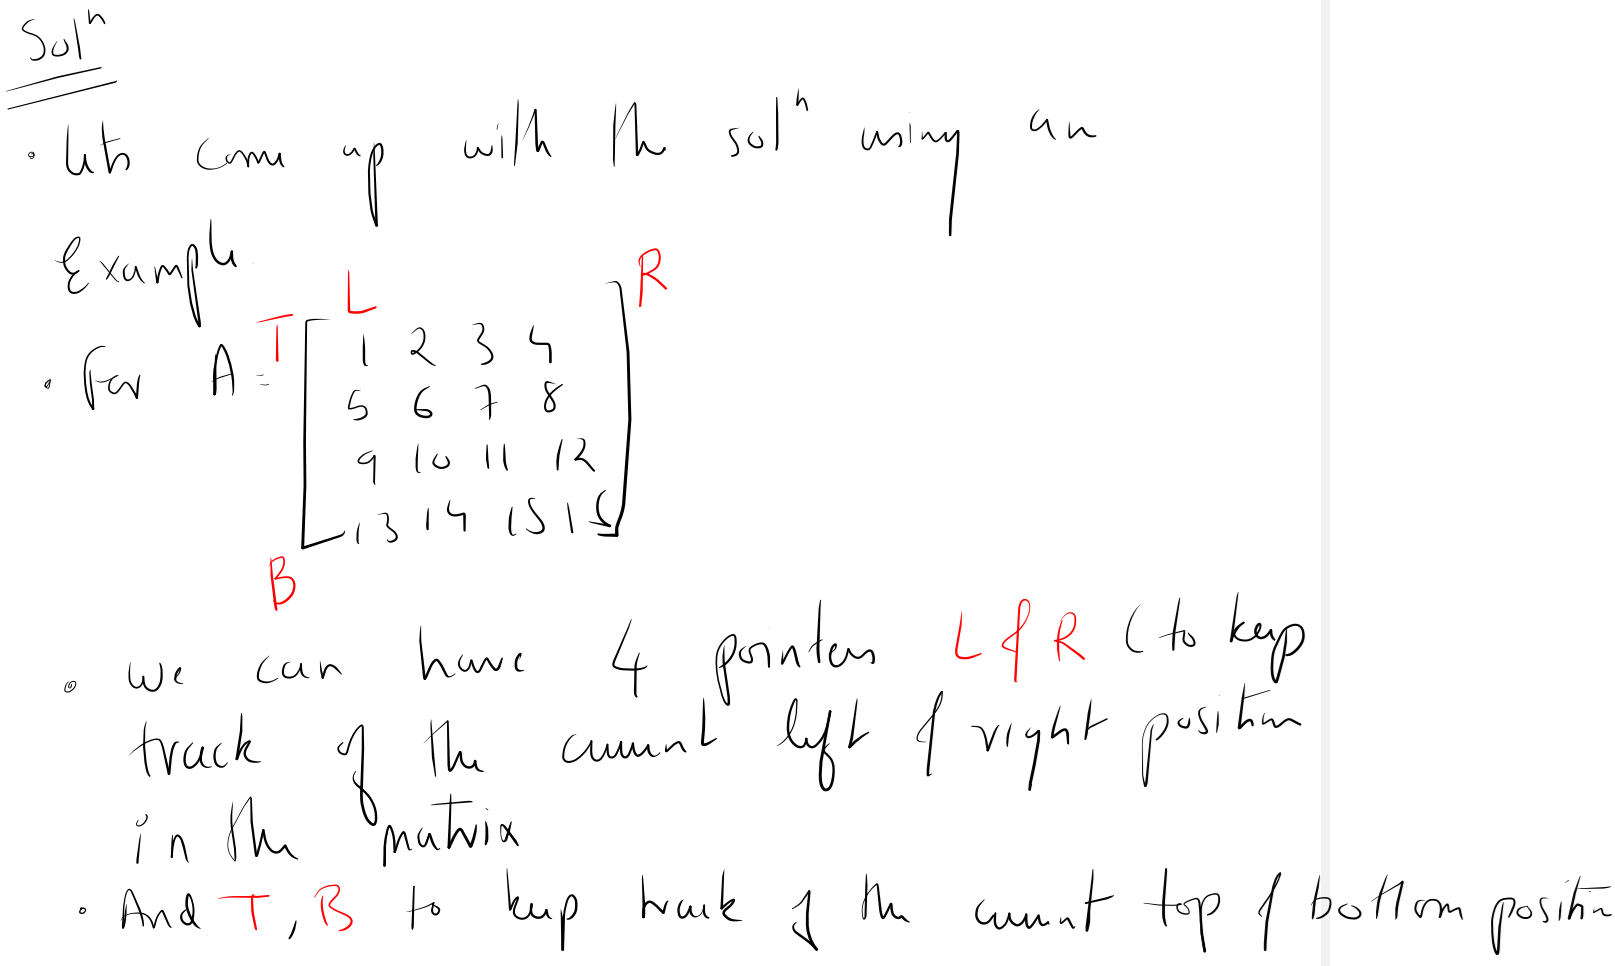 Solⁿ
• lets come up with the solⁿ using an
Example
L R
• For A = T
1 2 3 4
5 6 7 8
9 10 11 12
13 14 15 16
B
• We can have 4 pointers L & R (to keep
track of the current left & right position
in the matrix
• And T, B to keep track of the current top & bottom position